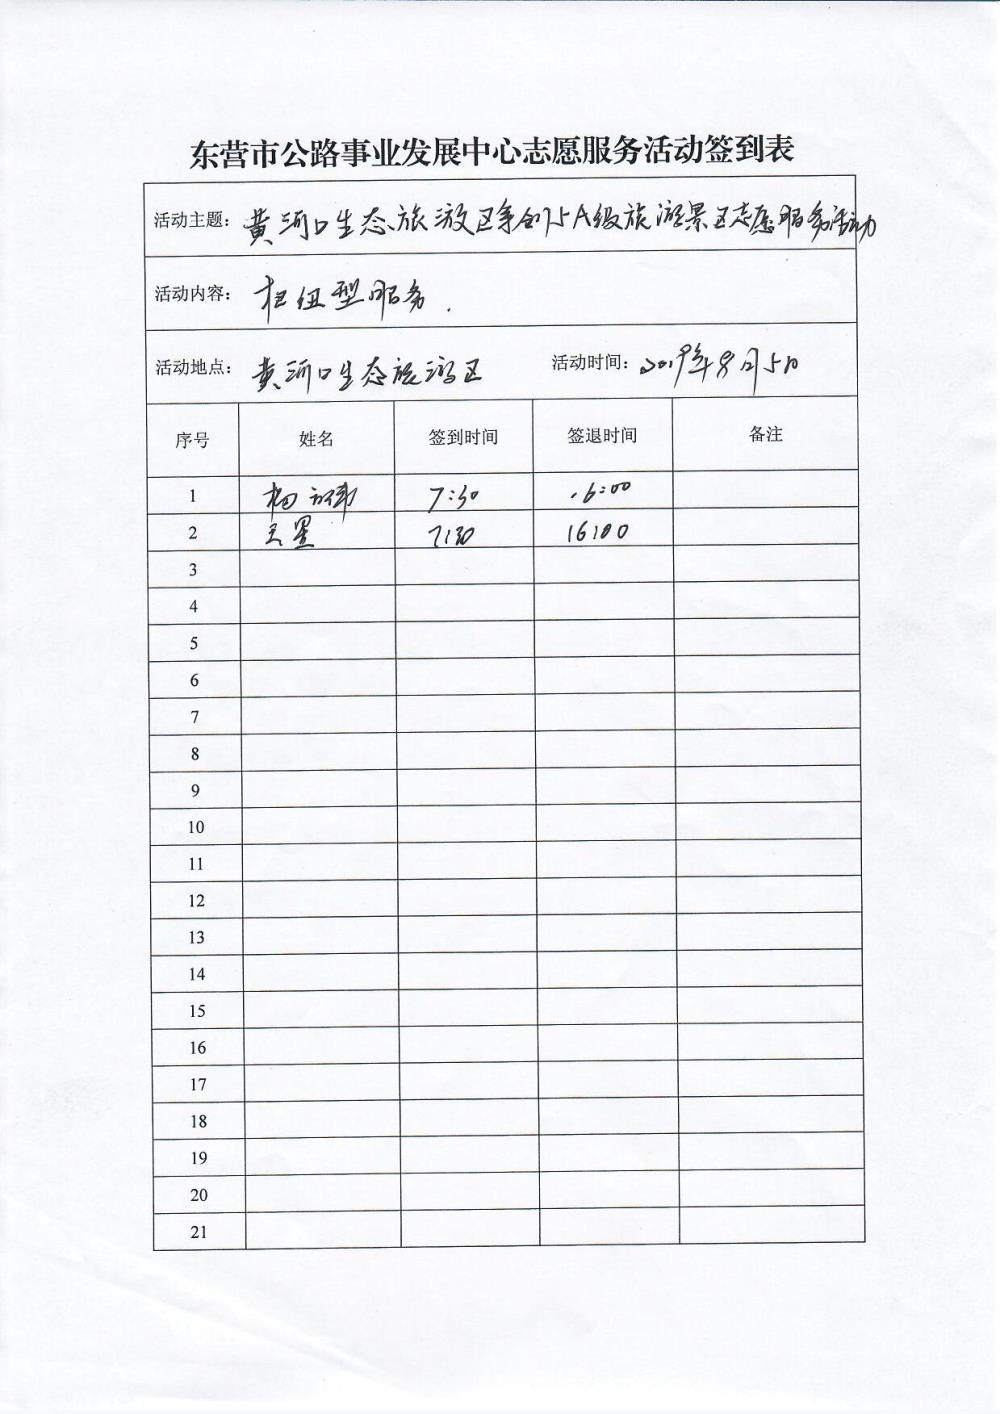 东营市公路事业发展中心志愿服务活动签到表
活动主题：黄河口生态旅游区争创5A级旅游景区志愿服务活动
活动内容：枢纽型服务.
活动地点：黄河口生态旅游区 活动时间：2019年9月5日
序号 姓名 签到时间 签退时间 备注
1 杨 7:30 16:00
2 7:30 16:00
3
4
5
6
7
8
9
10
11
12
13
14
15
16
17
18
19
20
21